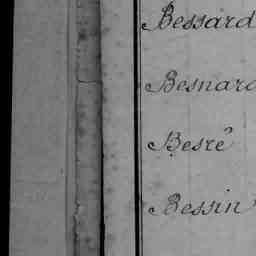 Bessard
Besnard
Besrê
Bessin